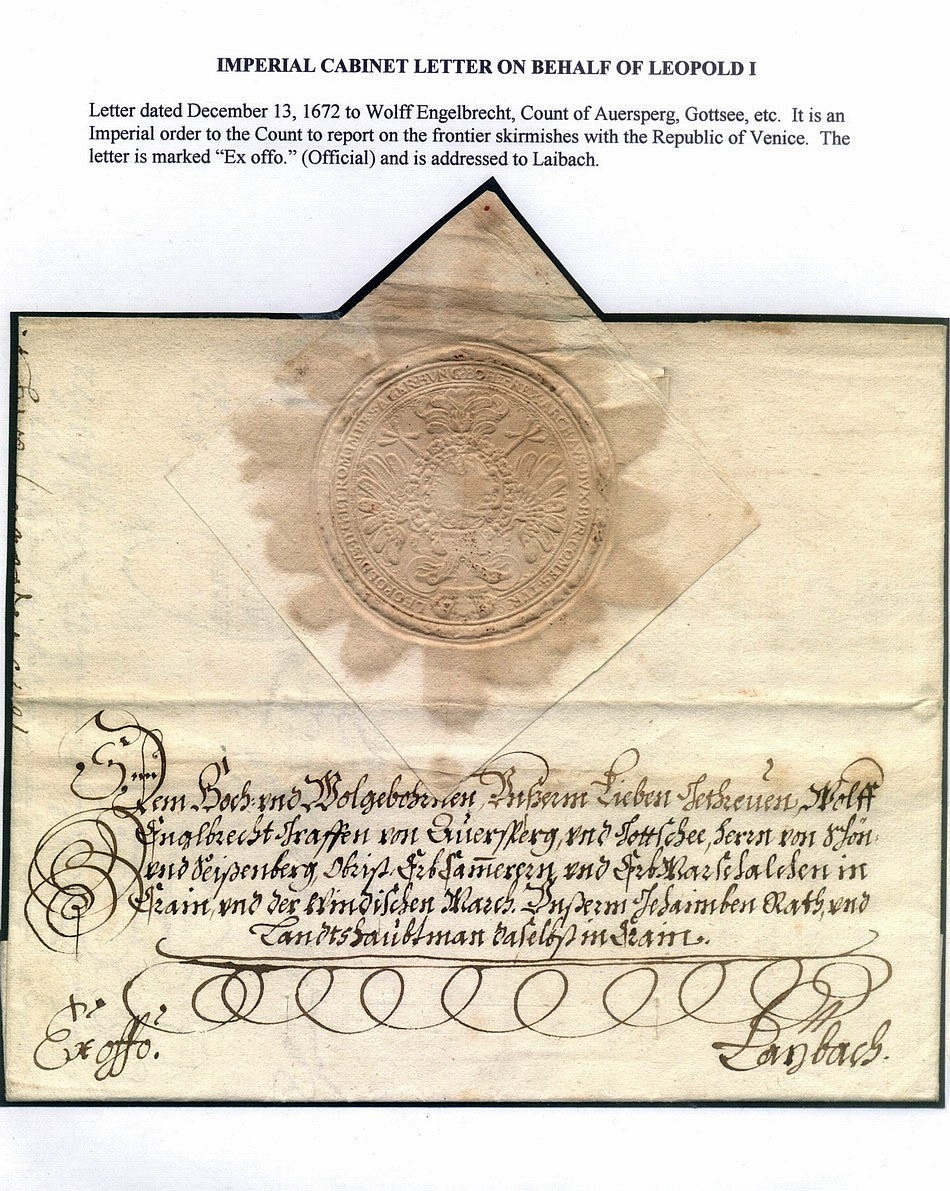 IMPERIAL CABINET LETTER ON BEHALF OF LEOPOLD I
Letter dated December 13, 1672 to Wolff Engelbrecht, Count of Auersperg, Gottsee, etc. It is an
Imperial order to the Count to report on the frontier skirmishes with the Republic of Venice. The
letter is marked “Ex offo.” (Official) and is addressed to Laibach.
Dem Hoch und Wolgebohrnen, Unßerm Lieben Getreuen, Wolff
Englbrecht Graffen von Auersperg, und Gottschee, Herrn von Schön
und Seißenberg, Obrist Erb Cam̄erern, und Erb Marschalchen in
Crain, und der Windischen March. Unßerm Gehaimben Rath, und
Landtshaubtman daselbst in Crain.
Ex offo.
Laybach.